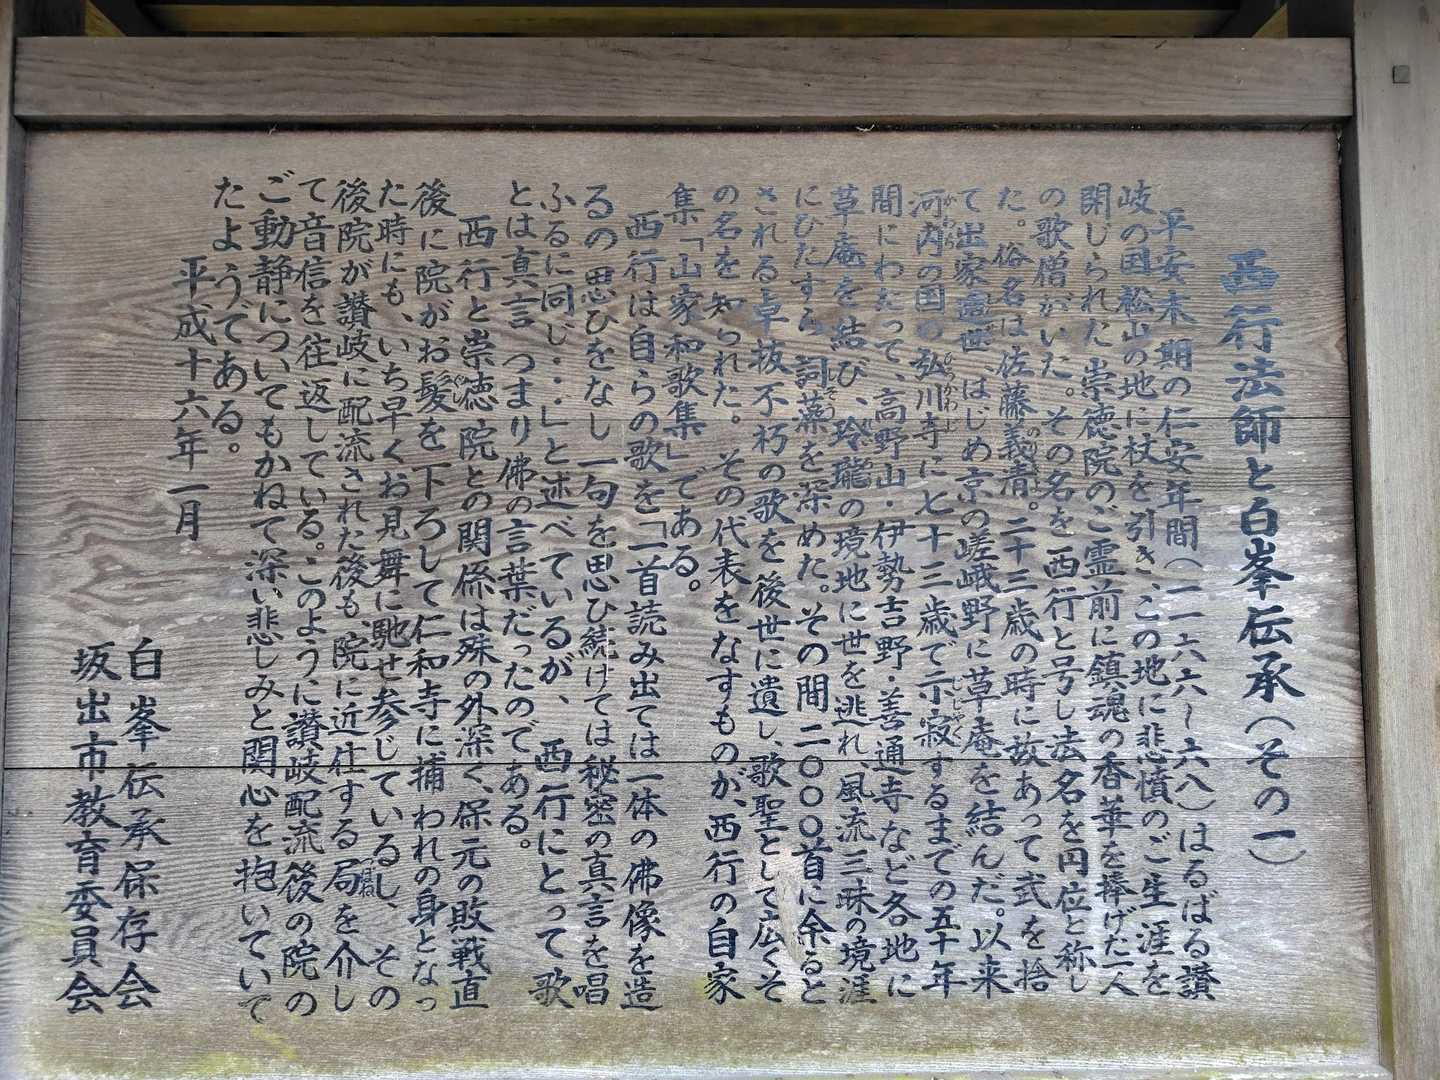 西行法師と白峯伝承（その一）
平安末期の仁安年間（一一六六～六八）はるばる讃
岐の国松山の地に杖を引き、この地に悲憤のご生涯を
閉じられた崇徳院のご霊前に鎮魂の香華を捧げた一人
の歌僧がいた。その名を西行と号し法名を円位と称し
た。俗名は佐藤義清。二十三歳の時に故あって武を捨
て出家遁世、はじめ京の嵯峨野に草庵を結んだ。以来
河内の国の弘川寺に七十三歳で示寂するまでの五十年
間にわたって、高野山・伊勢吉野・善通寺など各地に
草庵を結び、玲瓏の境地に世を逃れ、風流三昧の境涯
にひたすら詞藻を深めた。その間二〇〇〇首に余ると
される卓抜不朽の歌を後世に遺し、歌聖として広くそ
の名を知られた。その代表をなすものが、西行の自家
集「山家和歌集」である。
西行は自らの歌を「一首読み出ては一体の佛像を造
るの思ひをなし一句を思ひ続けては秘密の真言を唱
ふるに同じ・・・」と述べているが、西行にとって歌
とは真言つまり佛の言葉だったのである。
西行と崇徳院との関係は殊の外深く、保元の敗戦直
後に院がお髪を下ろして仁和寺に捕われの身となっ
た時にも、いち早くお見舞に馳せ参じているし、その
後院が讃岐に配流された後も、院に近仕する局を介し
て音信を往返している。このように讃岐配流後の院の
ご動静についてもかねて深い悲しみと関心を抱いてい
たようである。
平成十六年一月
白峯伝承保存会
坂出市教育委員会